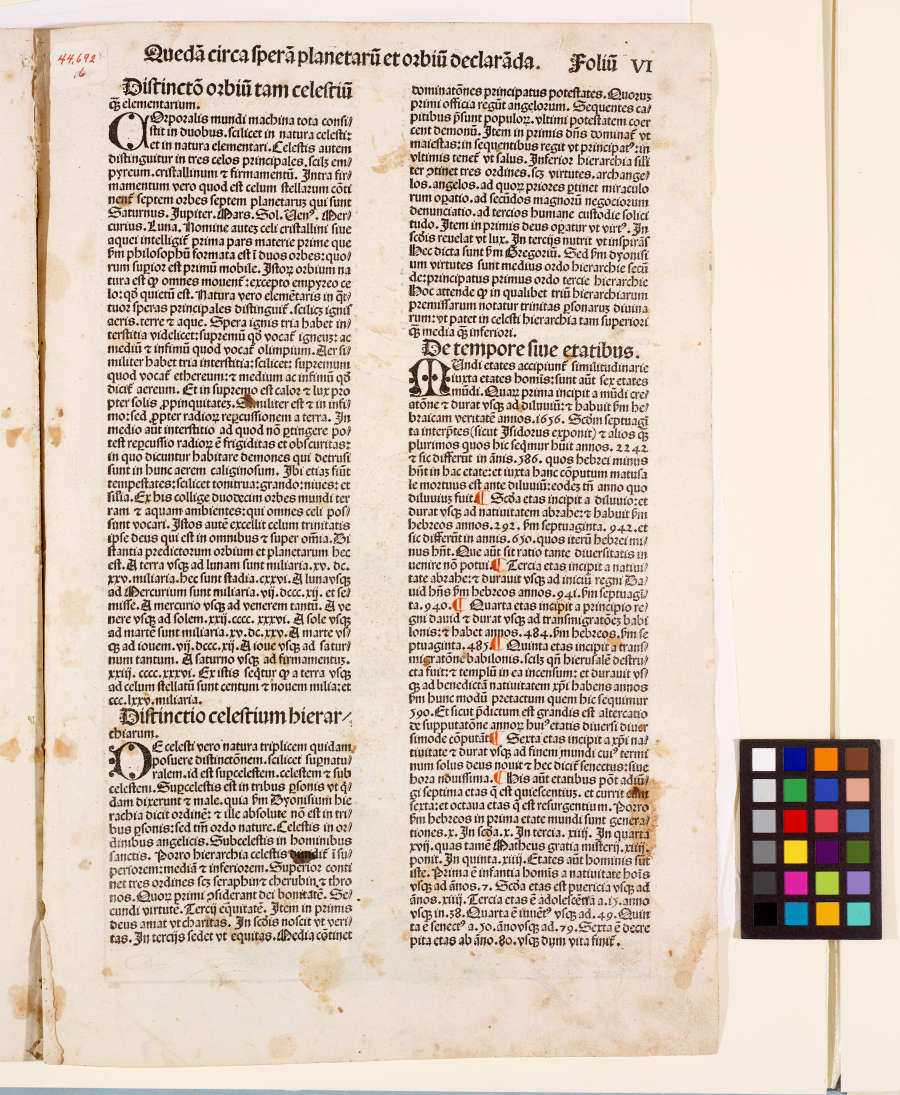 44,692
6
Quedā circa sperā planetarū et orbiū declarāda. Foliū VI
Distinctō orbiū tam celestiū
q̄ȝ elementarium.
COrporalis mundi machina tota consi/
stit in duobus. scilicet in natura celesti:
et in natura elementari. Celestis autem
distinguitur in tres celos principales. scilȝ em/
pyreum. cristallinum ⁊ firmamentū. Intra fir/
mamentum vero quod est celum stellarum cōti
nent᷑ septem orbes septem planetaruȝ qui sunt
Saturnus. Jupiter. Mars. Sol. Venꝰ. Mer/
curius. Luna. Nomine auteȝ celi cristallini siue
aquei intelligit᷑ prima pars materie prime que
ẜm philosophū formata est ī duos orbes: quo/
rum supior est primū mobile. Istoꝝ orbium na
tura est ꝙ omnes mouent᷑: excepto empyreo ce
lo: qđ quietū est. Natura vero elemētaris in q̄t/
tuor speras principales distinguit᷑. scilicȝ ignis
aeris. terre ⁊ aque. Spera ignis tria habet in/
terstitia videlicet: supremū qđ vocat᷑ igneuȝ: ac
mediū ⁊ infimū quod vocat᷑ olimpium. Aer si/
militer habet tria interstitia: scilicet: supremum
quod vocat᷑ ethereum: ⁊ medium ac infimū qđ
dicit᷑ aereum. Et in supremo est calor ⁊ lux pro
pter solis ꝓpinquitateȝ. Similiter est ⁊ in infi/
mo: sed ꝓpter radioꝝ repcussionem a terra. In
medio aūt interstitio ad quod nō ꝑtingere po/
test repcussio radioꝝ ē frigiditas et obscuritas:
in quo dicuntur habitare demones qui detrusi
sunt in hunc aerem caliginosum. Ibi etiaȝ fiūt
tempestates: scilicet tonitrua: grando: niues: et
silia. Ex his collige duodecim orbes mundi ter
ram ⁊ aquam ambientes: qui omnes celi pos/
sunt vocari. Istos autē excellit celum trinitatis
ipse deus qui est in omnibus ⁊ super om̄ia. Di
stantia predictorum orbium et planetarum hec
est. A terra vsqȝ ad lunam sunt miliaria. xv. dc.
xxv. miliaria. hec sunt stadia. cxxvi. A luna vsqȝ
ad Mercurium sunt miliaria. vij. dccc. xij. et se/
misse. A mercurio vsqȝ ad venerem tantū. A ve
nere vsqȝ ad solem. xxij. cccc. xxxvi. A sole vsqȝ
ad martē sunt miliaria. xv. dc. xxv. A marte vs/
qȝ ad iouem. vij. dccc. xij. A ioue vsqȝ ad satur/
num tantum. A saturno vsqȝ ad firmamentuȝ.
xxiij. cccc. xxxvi. Ex istis seq̄tur ꝙ a terra vsqȝ
ad celum stellatū sunt centum ⁊ nouem milia: et
ccc. lxxv. miliaria.
Distinctio celestium hierar/
chiarum.
DE celesti vero natura triplicem quidam
posuere distinctōnem. scilicet supnatu/
ralem. id est supcelestem. celestem ⁊ sub
celestem. Supcelestis est in tribus ꝑsonis vt q̄/
dam dixerunt ⁊ male. quia ẜm Dyonisium hie
rachia dicit ordinē: ⁊ ille absolute nō est in tri/
bus ꝑsonis: sed tm̄ ordo nature. Celestis in or/
dinibus angelicis. Subcelestis in hominibus
sanctis. Porro hierarchia celestis diuidit᷑ ī su/
periorem: mediā ⁊ inferiorem. Superior conti
net tres ordines scȝ seraphin ⁊ cherubin ⁊ thro
nos. Quoꝝ primi ꝯsiderant dei bonitatē. Se/
cundi virtutē. Tercij equitatē. Item in primis
deus amat vt charitas. In scđis noscit vt veri/
tas. In tercijs sedet vt equitas. Media cōtinet
dominatōnes principatus potestates. Quoruȝ
primi officia regūt angelorum. Sequentes ca/
pitibus ꝑsunt populoꝝ. vltimi potestatem coer
cent demonū. Item in primis dn̄s dominat᷑ vt
maiestas: in sequentibus regit vt principatꝰ: in
vltimis tenet᷑ vt salus. Inferior hierarchia sili
ter ꝯtinet tres ordines. scȝ virtutes. archange/
los. angelos. ad quoꝝ priores ꝑtinet miraculo
rum oꝑatio. ad secūdos magnorū negociorum
denunciatio. ad tercios humane custodie solici
tudo. Item in primis deus oꝑatur vt virtꝰ. In
scđis reuelat vt lux. In tercijs nutrit vt inspirās
Hec dicta sunt ẜm Gregoriū. Sed ẜm dyonisi
um virtutes sunt medius ordo hierarchie secū
de: principatus primus ordo tercie hierarchie
Hoc attende ꝙ in qualibet triū hierarchiarum
premissarum notatur trinitas ꝑsonaruȝ diuina
rum: vt patet in celesti hierarchia tam superiori
q̄ȝ media q̄ȝ inferiori.
De tempore siue etatibus.
MUndi etates accipiunt᷑ similitudinarie
iuxta etates homīs: sunt aūt sex etates
mūdi. Quaꝝ prima incipit a mūdi cre/
atōne ⁊ durat vsqȝ ad diluuiū: ⁊ habuit ẜm he/
braicam veritatē annos. 1656. Scđm septuagī
ta interp̄tes (sicut Isidorus exponit) ⁊ alios q̄ȝ
plurimos quos hic seq̄mur hūit annos. 2242
⁊ sic differūt in ānis. 586. quos hebrei minus
hn̄t in hac etate: et iuxta hanc cōputum matusa
le mortuus est ante diluuiū: eodeȝ tn̄ anno quo
diluuiuȝ fuit. ¶ Scđa etas incipit a diluuio: et
durat vsqȝ ad natiuitatem abrahe: ⁊ habuit ẜm
hebreos annos. 292. ẜm septuaginta. 942. et
sic differūt in annis. 650. quos iterū hebrei mi/
nus hn̄t. Que aūt sit ratio tante diuersitatis in
uenire nōn potui. ¶ Tercia etas incipit a natiui/
tate abrahe: ⁊ durauit vsqȝ ad iniciū regni Da/
uid hn̄s ẜm hebreos annos. 941. ẜm septuagī/
ta. 940. ¶ Quarta etas incipit a principio re/
gni dauid ⁊ durat vsqȝ ad transmigratōeȝ babi
lonis: ⁊ habet annos. 484. ẜm hebreos. ẜm se
ptuaginta. 485. ¶ Quinta etas incipit a trans/
migratōne babilonis. scilȝ qn̄ hierusalē destru/
cta fuit: ⁊ templū in ea incensum: et durauit vs/
qȝ ad benedictā natiuitatem xp̄i habens annos
ẜm hunc modū pretactum quem hic sequimur
590. Et sicut p̄dictum est grandis est altercatio
de supputatōne annoꝝ huiꝰ etatis diuersi diuer
simode cōputāt. ¶ Sexta etas incipit a xp̄i na/
tiuitate ⁊ durat vsqȝ ad finem mundi cuiꝰ termi
num solus deus nouit ⁊ hec dicit᷑ senectus: siue
hora nouissima. ¶ His aūt etatibus pōt adiū/
gi septima etas q̄ est quiescentius. et currit cum
sexta: et octaua etas q̄ est resurgentium. Porro
ẜm hebreos in prima etate mundi sunt genera/
tiones. x. In scđa. x. In tercia. xiiij. In quarta
xvij. quas tamē Matheus gratia misterij. xiiij.
ponit. In quinta. xiiij. Etates aūt hominis sūt
iste. Prima ē infantia homīs a natiuitate hoīs
vsqȝ ad ānos. 7. Scđa etas est puericia vsqȝ ad
ānos. xiiij. Tercia etas ē adolescētia a. 15. anno
vsqȝ in. 38. Quarta ē iuuētꝰ vsqȝ ad. 49. Quin
ta ē senectꝰ a. 50. āno vsqȝ ad. 79. Sexta ē decre
pita etas ab āno. 80. vsqȝ dum vita finit᷑.